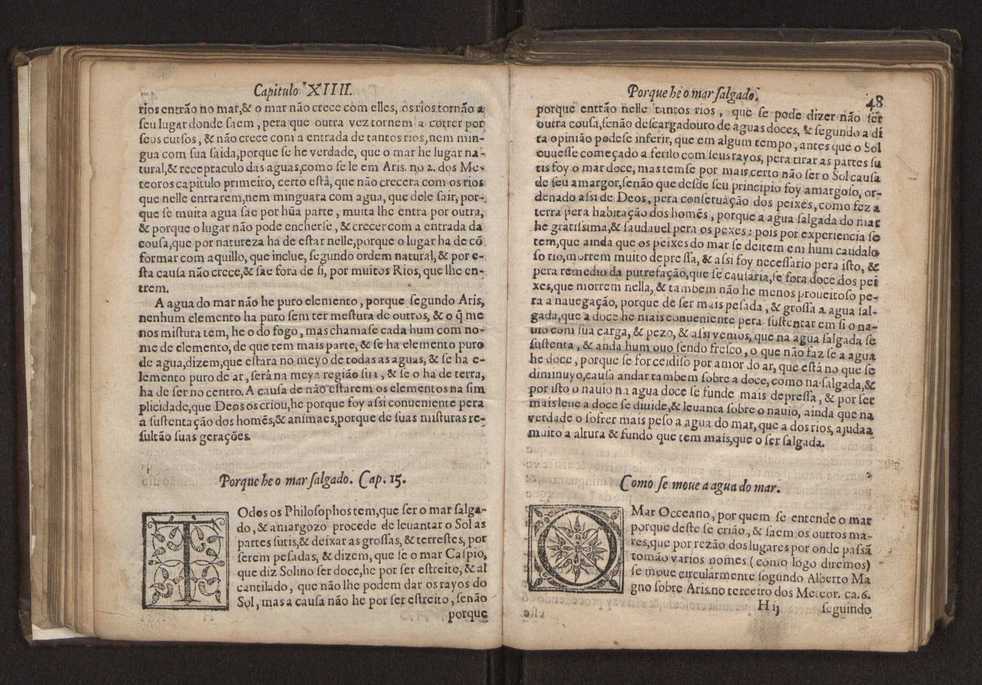 Capitulo XIIII.
rios entrão no mar,& o mar não crece com elles, os rios tornão a
seu lugar donde saem, pera que outra vez tornem a correr por
seus cursos, & não crece com a entrada de tantos rios,nem min-
gua com sua saida,porque se he verdade, que o mar he lugar na-
tural,& receptaculo das aguas,como se le em Aris. no 2. dos Me-
teoros capitulo primeiro, certo está, que não crecera com os rios
que nelle entrarem,nem minguara com agua, que dele sair, por-
que se muita agua sae por hũa parte, muita lhe entra por outra,
& porque o lugar não pode encherse, & crecer com a entrada da
cousa,que por natureza ha de estar nelle,porque o lugar ha de cõ
formar com aquillo, que inclue, segundo ordem natural,& por e-
sta causa não crece,& sae fora de si, por muitos Rios, que lhe en-
trem.
A agua do mar não he puro elemento, porque segundo Aris,
nenhum elemento ha puro sem ter mestura de outros, & o q̃ me
nos mistura tem, he o do fogo, mas chamase cada hum com no-
me de elemento, de que tem mais parte, & se ha elemento puro
de agua,dizem,que estara no meyo de todas as aguas, & se ha e-
lemento puro de ar, será na meya região sua, & se o ha de terra,
ha de ser no centro. A causa de não estarem os elementos na sim
plicidade,que Deos os criou,he porque foy assi conueniente pera
a sustentação dos homẽs,& animaes,porque de suas misturas re-
sultão suas gerações.
Porque he o mar salgado. Cap. 15.
TOdos os Philosophos tem,que ser o mar salga-
do, & amargozo procede de leuantar o Sol as
partes sutis,& deixar as grossas, & terrestes, por
serem pesadas, & dizem, que se o mar Caspio,
que diz Solino ser doce,he por ser estreito, & al
cantilado, que não lhe podem dar os rayos do
Sol, mas a causa não he por ser estreito, senão
porque
Porque he o mar salgado.
48
porque entrão nelle tantos rios, que se pode dizer não ser
outra cousa,senão descargadouro de aguas doces, & segundo a di
ta opinião podese inferir, que em algum tempo, antes que o Sol
ouuesse começado a ferilo com seus rayos, pera tirar as partes su
tis foy o mar doce, mas temse por mais certo não ser o Sol causa
de seu amargor, senão que desde seu principio foy amargoso, or-
denado assi de Deos, pera conseruação dos peixes, como fez a
terra pera habitação dos homẽs, porque a agua salgada do mar
he gratissima,& saudauel pera os pexes: pois por experiencia se
tem,que ainda que os peixes do mar se deitem em hum caudalo
so rio,morrem muito depressa, & assi foy necessario pera isto, &
pera remedio da putrefação,que se causaria,se fora doce dos pei
xes,que morrem nella, & tambem não he menos proueitoso pe-
ra a nauegação, porque de ser mais pesada, & grossa a agua sal-
gada,que a doce he mais conueniente pera sustentar em si o na-
uio com sua carga, & pezo, & assi vemos, que na agua salgada se
sustenta, & anda hum ouo sendo fresco, o que não faz se a agua
he doce, porque se for cedisso por amor do ar, que está no que se
diminuyo,causa andar tambem sobre a doce, como na salgada,&
por isto o nauio na agua doce se funde mais depressa, & por ser
mais leue a doce se diuide,& leuanta sobre o nauio, ainda que na
verdade o sofrer mais peso a agua do mar, que a dos rios, ajuda a
muito a altura & fundo que tem mais,que o ser salgada.
Como se moue a agua do mar.
O Mar Occeano, por quem se entende o mar
porque deste se crião, & saem os outros ma-
res,que por rezão dos lugares por onde passã
tomão varios nomes (como logo diremos)
se moue circularmente segundo Alberto Ma
gno sobre Aris.no terceiro dos Meteor. ca.6.
H ij
seguindo